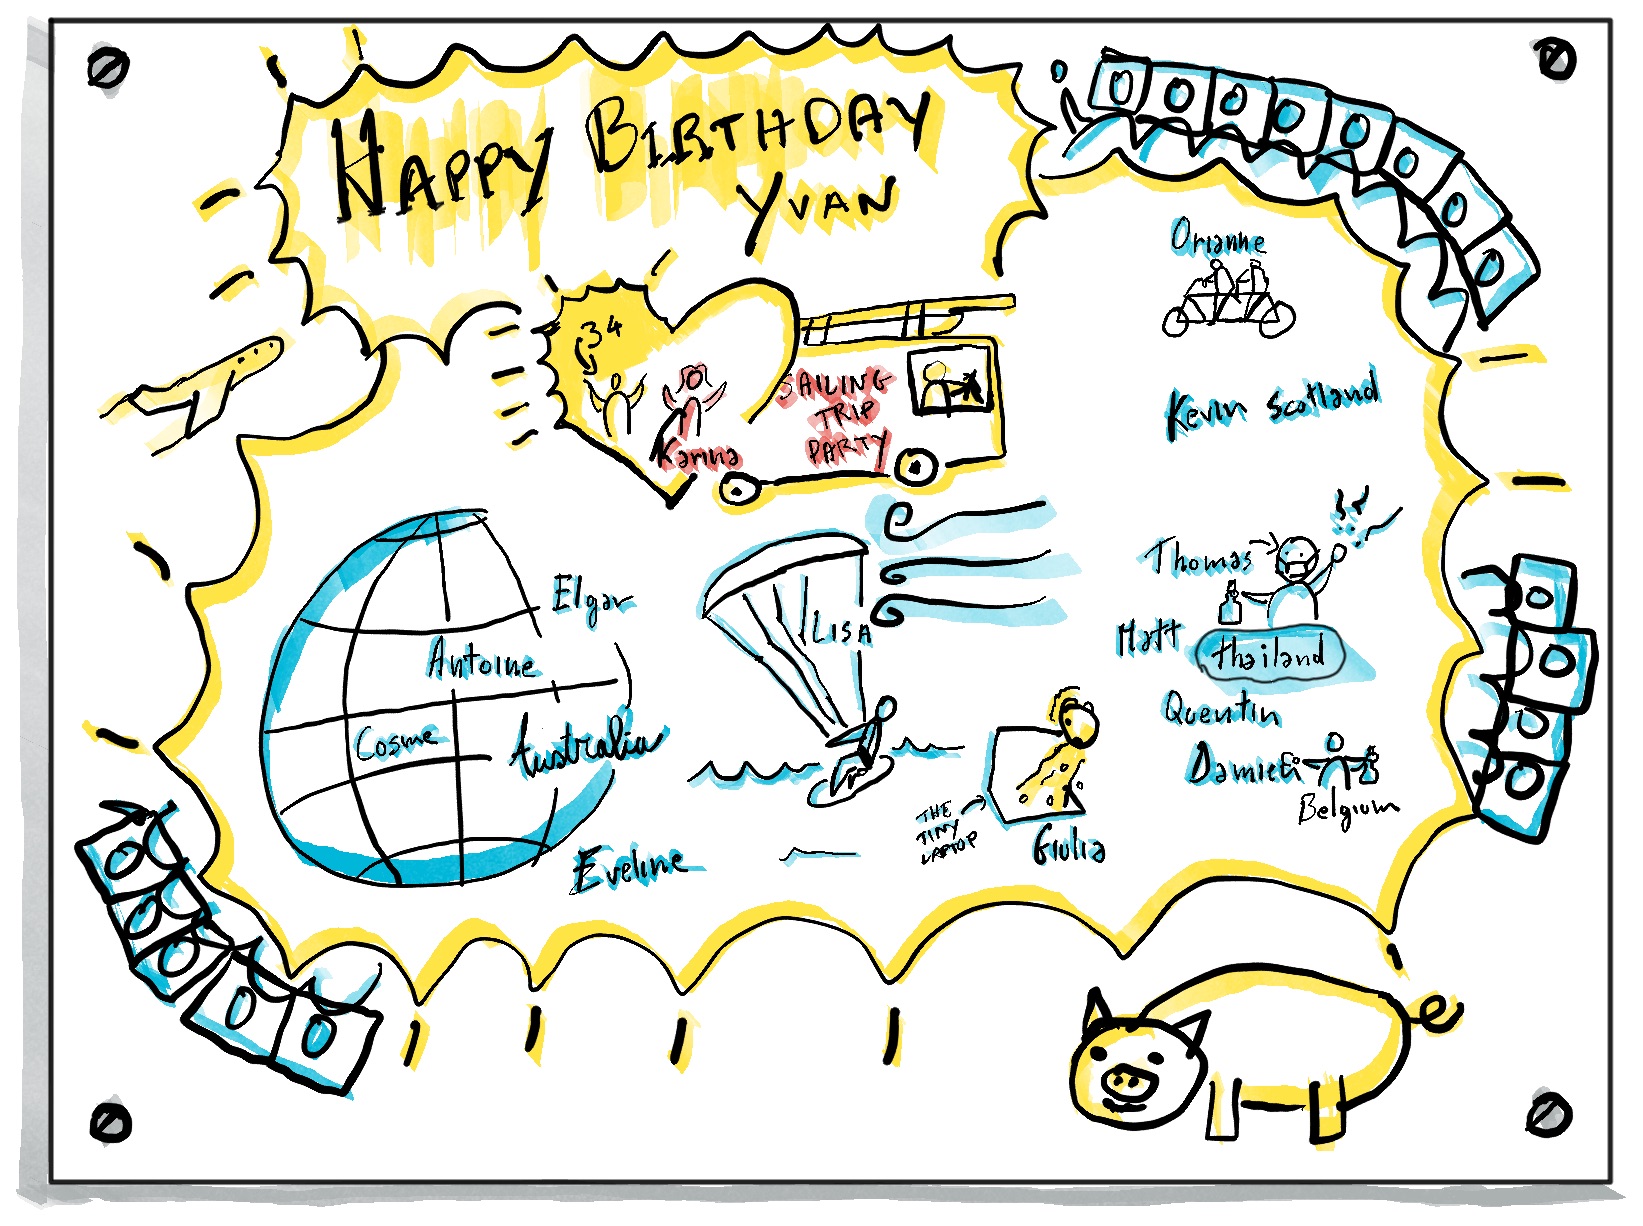 HAPPY BIRTHDAY
YVAN
34
Karina
SAILING
TRIP
PARTY
Orianne
Kevin Scotland
Elgar
Antoine
Cosme
Australia
Eveline
LISA
THE
TINY
LAPTOP
Giulia
Thomas
Matt
thailand
Quentin
Damien
Belgium